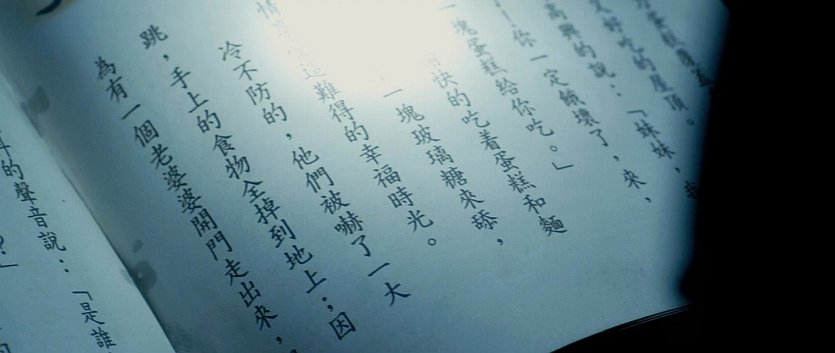 好吃的屋頂。
高興的說：「妹妹，
你一定餓壞了，來，
塊蛋糕給你吃。」
快的吃着蛋糕和麵
一塊玻璃糖來舔，
難得的幸福時光。
冷不防的，他們被嚇了一大
跳，手上的食物全掉到地上；因
為有一個老婆婆開門走出來，
的聲音說：「是誰